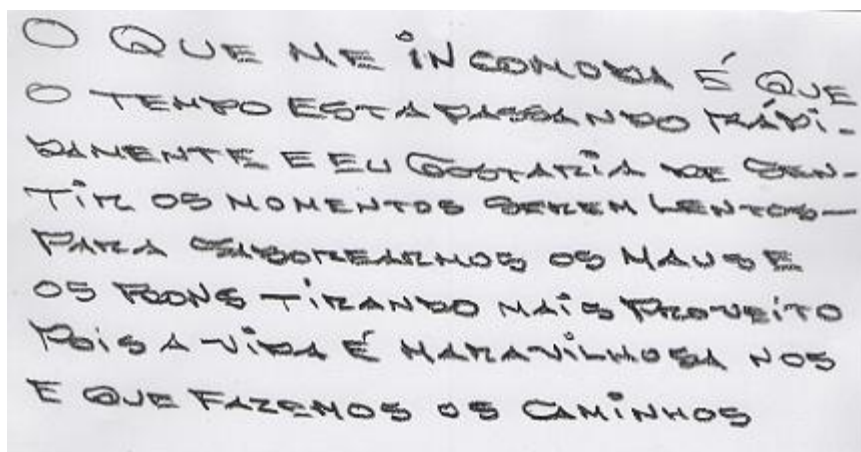 O QUE ME INCOMODA É QUE
O TEMPO ESTA PASSANDO RÁPI-
DAMENTE E EU GOSTARIA DE SEN-
TIR OS MOMENTOS SEREM LENTOS—
PARA SABOREARMOS OS MAUS E
OS BONS TIRANDO MAIS PROVEITO
POIS A VIDA É MARAVILHOSA NOS
E QUE FAZEMOS OS CAMINHOS